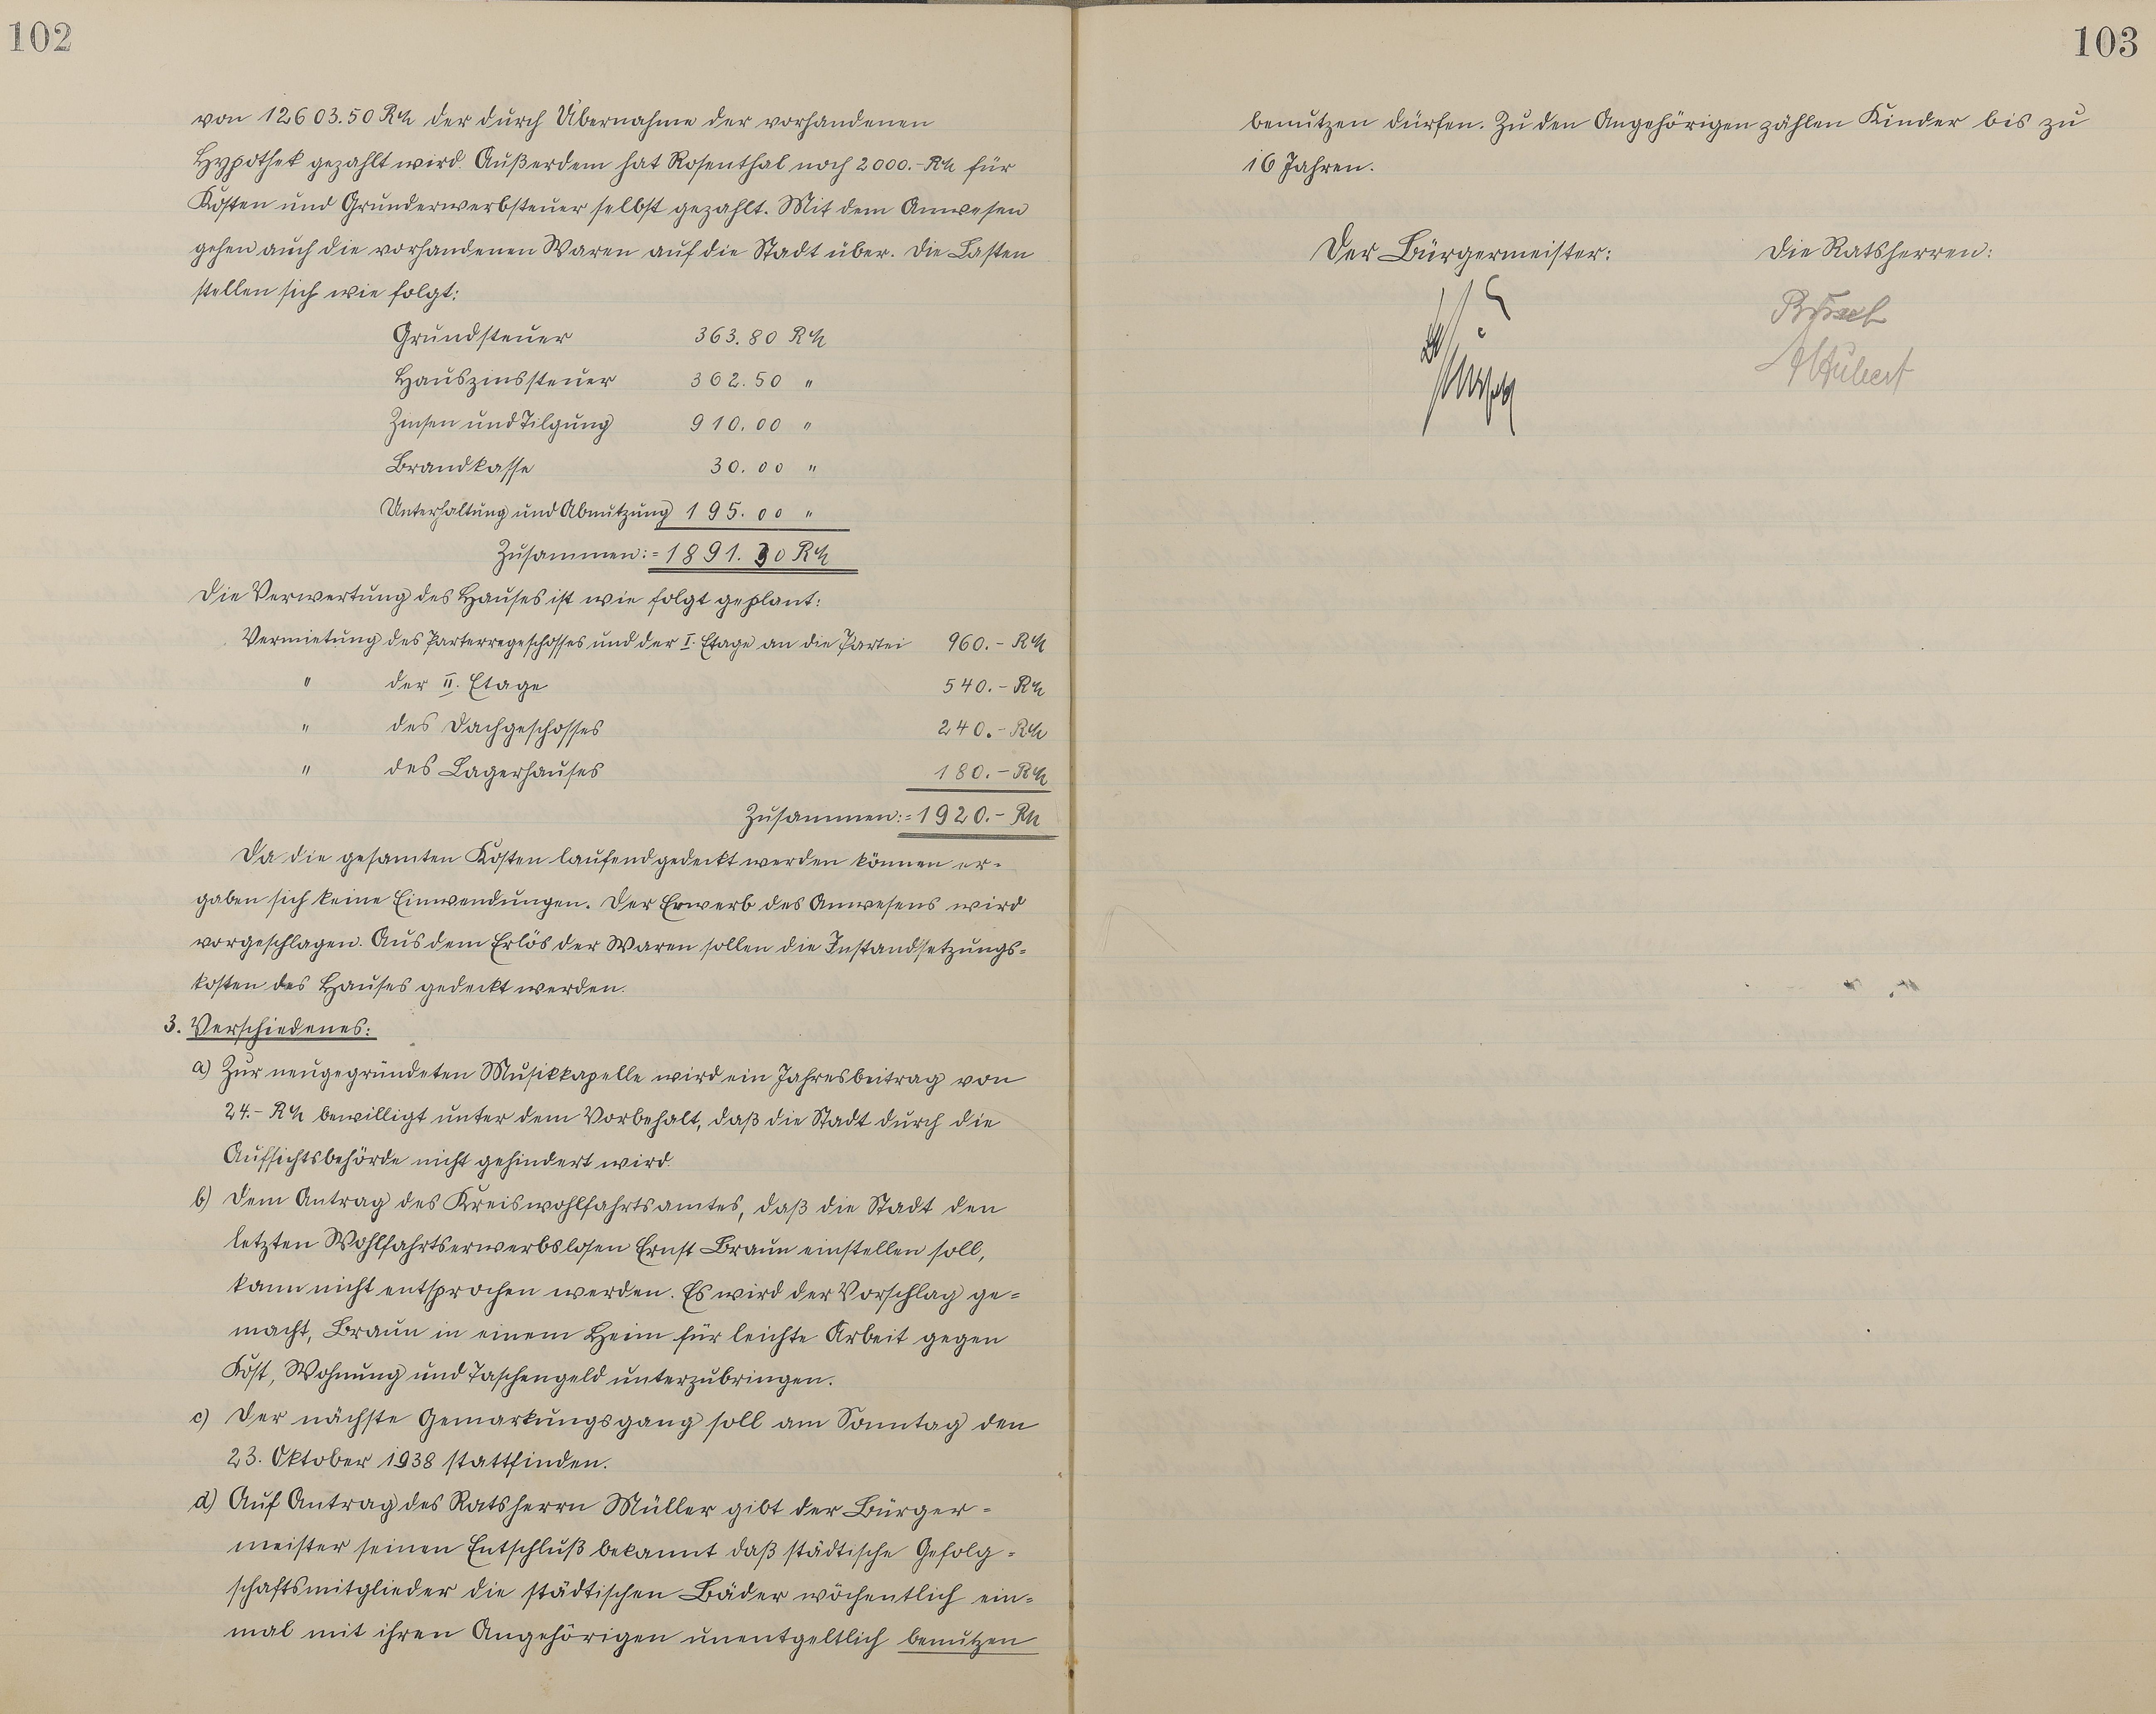 102
von 12603.50 RM der durch Übernahme der vorhandenen
Hypothek gezahlt wird. Außerdem hat Rosenthal noch 2000.- RM für
Kosten und Grunderwerbsteuer selbst gezahlt. Mit dem Anwesen
gehen auch die vorhandenen Waren auf die Stadt über. Die Lasten
stellen sich wie folgt:
Grundsteuer 363.80 RM
Hauszinssteuer 362.50 "
Zinsen und Tilgung 910.00 "
Brandkasse 30.00 "
Unterhaltung und Abnutzung 195.00 "
Zusammen:= 1891.30 RM
Die Verwertung des Hauses ist wie folgt geplant:
Vermietung des Parterregeschosses und der I. Etage an die Partei 960.- RM
" der II. Etage 540.- RM
" des Dachgeschosses 240.- RM
" des Lagerhauses 180.- RM
Zusammen:= 1920.- RM
Da die gesamten Kosten laufend gedeckt werden können er=
gaben sich keine Einwendungen. Der Erwerb des Anwesens wird
vorgeschlagen. Aus dem Erlös der Waren sollen die Instandsetzungs=
kosten des Hauses gedeckt werden.
3. Verschiedenes:
a) Zur neugegründeten Musikkapelle wird ein Jahresbeitrag von
24.- RM bewilligt unter dem Vorbehalt, daß die Stadt durch die
Aufsichtsbehörde nicht gehindert wird.
b) Dem Antrag des Kreiswohlfahrtsamtes, daß die Stadt den
letzten Wohlfahrtserwerbslosen Ernst Braun einstellen soll,
kann nicht entsprochen werden. Es wird der Vorschlag ge=
macht, Braun in einem Heim für leichte Arbeit gegen
Kost, Wohnung und Taschengeld unterzubringen.
c) Der nächste Gemarkungsgang soll am Sonntag den
23. Oktober 1938 stattfinden.
d) Auf Antrag des Ratsherrn Müller gibt der Bürger=
meister seinen Entschluß bekannt daß städtische Gefolg=
schaftsmitglieder die städtischen Bäder wöchentlich ein=
mal mit ihren Angehörigen unentgeltlich benutzen
103
benutzen dürfen. Zu den Angehörigen zählen Kinder bis zu
16 Jahren.
Der Bürgermeister: Die Ratsherren: